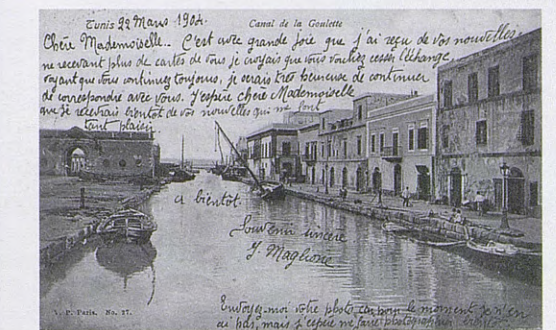 Tunis 22 Mars 1904. Canal de la Goulette
Chère Mademoiselle.. C'est avec grande joie que j'ai reçu de vos nouvelles,
ne recevant plus de cartes de vous je croyais que vous vouliez cesser l'échange,
voyant que vous continuez toujours, je serais très heureuse de continuer
de correspondre avec vous. J'espère Chère Mademoiselle
que je recevrais bientôt de vos nouvelles qui me font
tant plaisir
a bientôt.
Souvenir sincère
J. Maglione
Envoyez-moi votre photo, car pour le moment je n'en
ai pas, mais j'espère me faire photographier bientôt
V. P. Paris. No. 27.